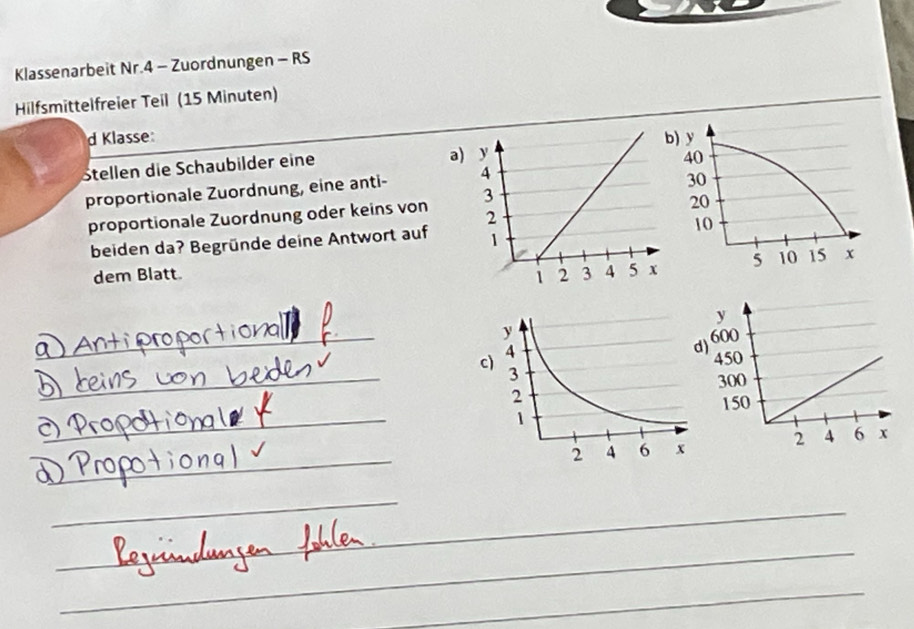 Klassenarbeit Nr.4 – Zuordnungen – RS
Hilfsmittelfreier Teil (15 Minuten)
d Klasse:
Stellen die Schaubilder eine
proportionale Zuordnung, eine anti-
proportionale Zuordnung oder keins von
beiden da? Begründe deine Antwort auf
dem Blatt.
a) y
4
3
2
1
1 2 3 4 5 x
b) y
40
30
20
10
5 10 15 x
c) y
4
3
2
1
2 4 6 x
d) y
600
450
300
150
2 4 6 x
a) Antiproportional f.
b) keins von beiden ✓
c) Propotional f
d) Propotional ✓
Begründungen fehlen.